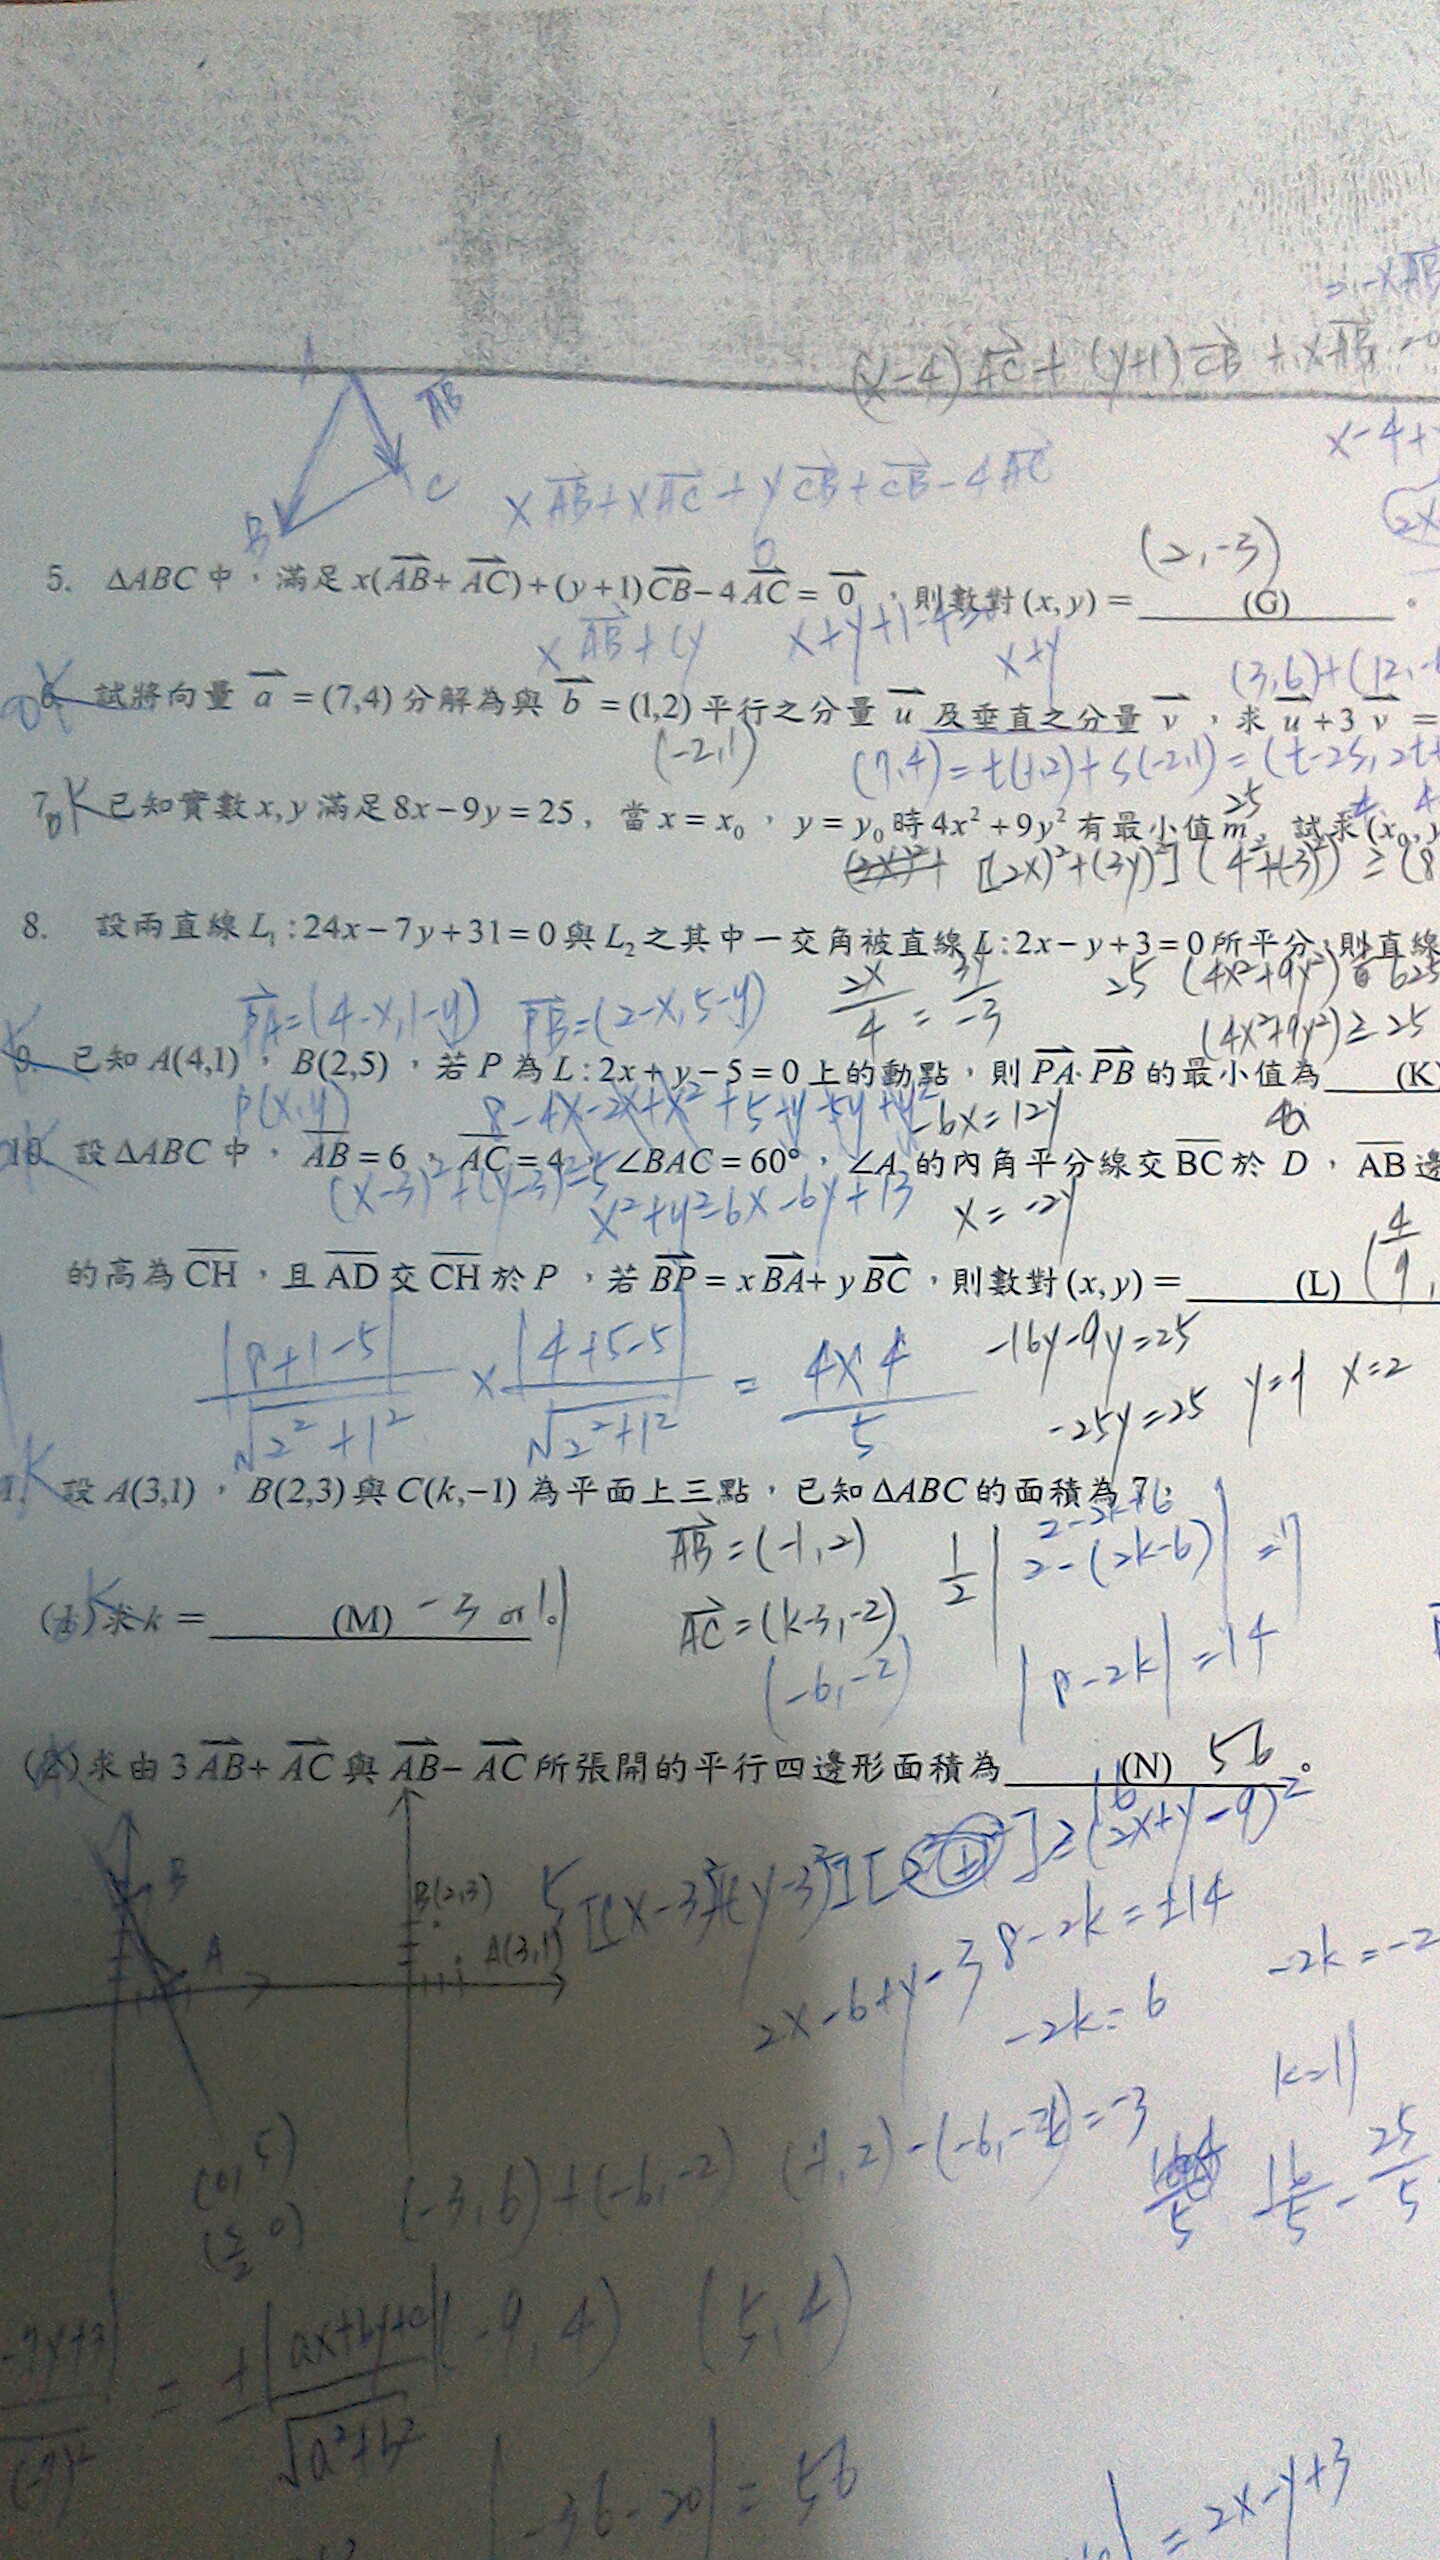 = -xAB
(x-4)AC + (y+1)CB + xAB =0
AB
A
x-4+
C
xAB + xAC + yCB + CB - 4AC
B
(2,-3)
5. ΔABC 中,滿足 x(AB+ AC)+(y+1)CB-4AC = 0 ,則數對(x,y)= (G) 。
xAB + (y
x+y+1-4=0
x+y
(3,6)+(12,-
6. 試將向量 a =(7,4)分解為與 b =(1,2)平行之分量 u 及垂直之分量 v ,求 u +3 v =
(-2,1)
(7,4)=t(1,2)+s(-2,1)=(t-2s,2t+
25
7. 已知實數x,y滿足8x-9y=25,當x=x₀,y=y₀時4x²+9y²有最小值m,試求(x₀,y
[(2x)²+(3y)²](4²+(-3)²) ≥ (8
8. 設兩直線L₁:24x-7y+31=0與L₂之其中一交角被直線L:2x-y+3=0所平分,則直線
PA=(4-x,1-y) PB=(2-x,5-y)
2x/4 = 3y/-3
25 (4x²+9y²) ≥ 625
(4x²+9y²) ≥ 25
9. 已知A(4,1),B(2,5),若P為L:2x+y-5=0上的動點,則PA·PB的最小值為 (K)
P(x,y)
8-4x-2x+x²+5-y-5y+y²
-6x=12y
10. 設ΔABC中,AB=6,AC=4,∠BAC=60°,∠A的內角平分線交BC於D,AB邊
(x-3)²+(y-3)²=5
x²+y²-6x-6y+13
x=-2y
的高為CH,且AD交CH於P,若BP=xBA+yBC,則數對(x,y)= (L) (4/9,
|8+1-5|/√2²+1² × |4+5-5|/√2²+1² = 4×4/5
-16y-9y=25
-25y=25 y=-1 x=2
設A(3,1),B(2,3)與C(k,-1)為平面上三點,已知ΔABC的面積為7:
2-2k+6
AB=(-1,2)
1/2|2-(2k-6)|=7
(1)求k= (M) -3 or 11 。
AC=(k-3,-2)
(-6,-2)
|8-2k|=14
(2)求由3AB+ AC與AB- AC所張開的平行四邊形面積為 (N) 56 。
B
B(2,3)
A
A(3,1)
5 [(x-3)²+(y-3)²][2²+1²] ≥ (2x+y-9)²
2x-6+y-3
8-2k=±14
-2k=6
-2k=-2
k=11
(0,5)
(5/2,0)
(-3,6)+(-6,-2)
(-1,2)-(-6,-2)=-3
16/5 - 25/5
(-9,4) (5,4)
= ±|ax+by+c|/√a²+b²
|-36-20|=56
=2x-y+3